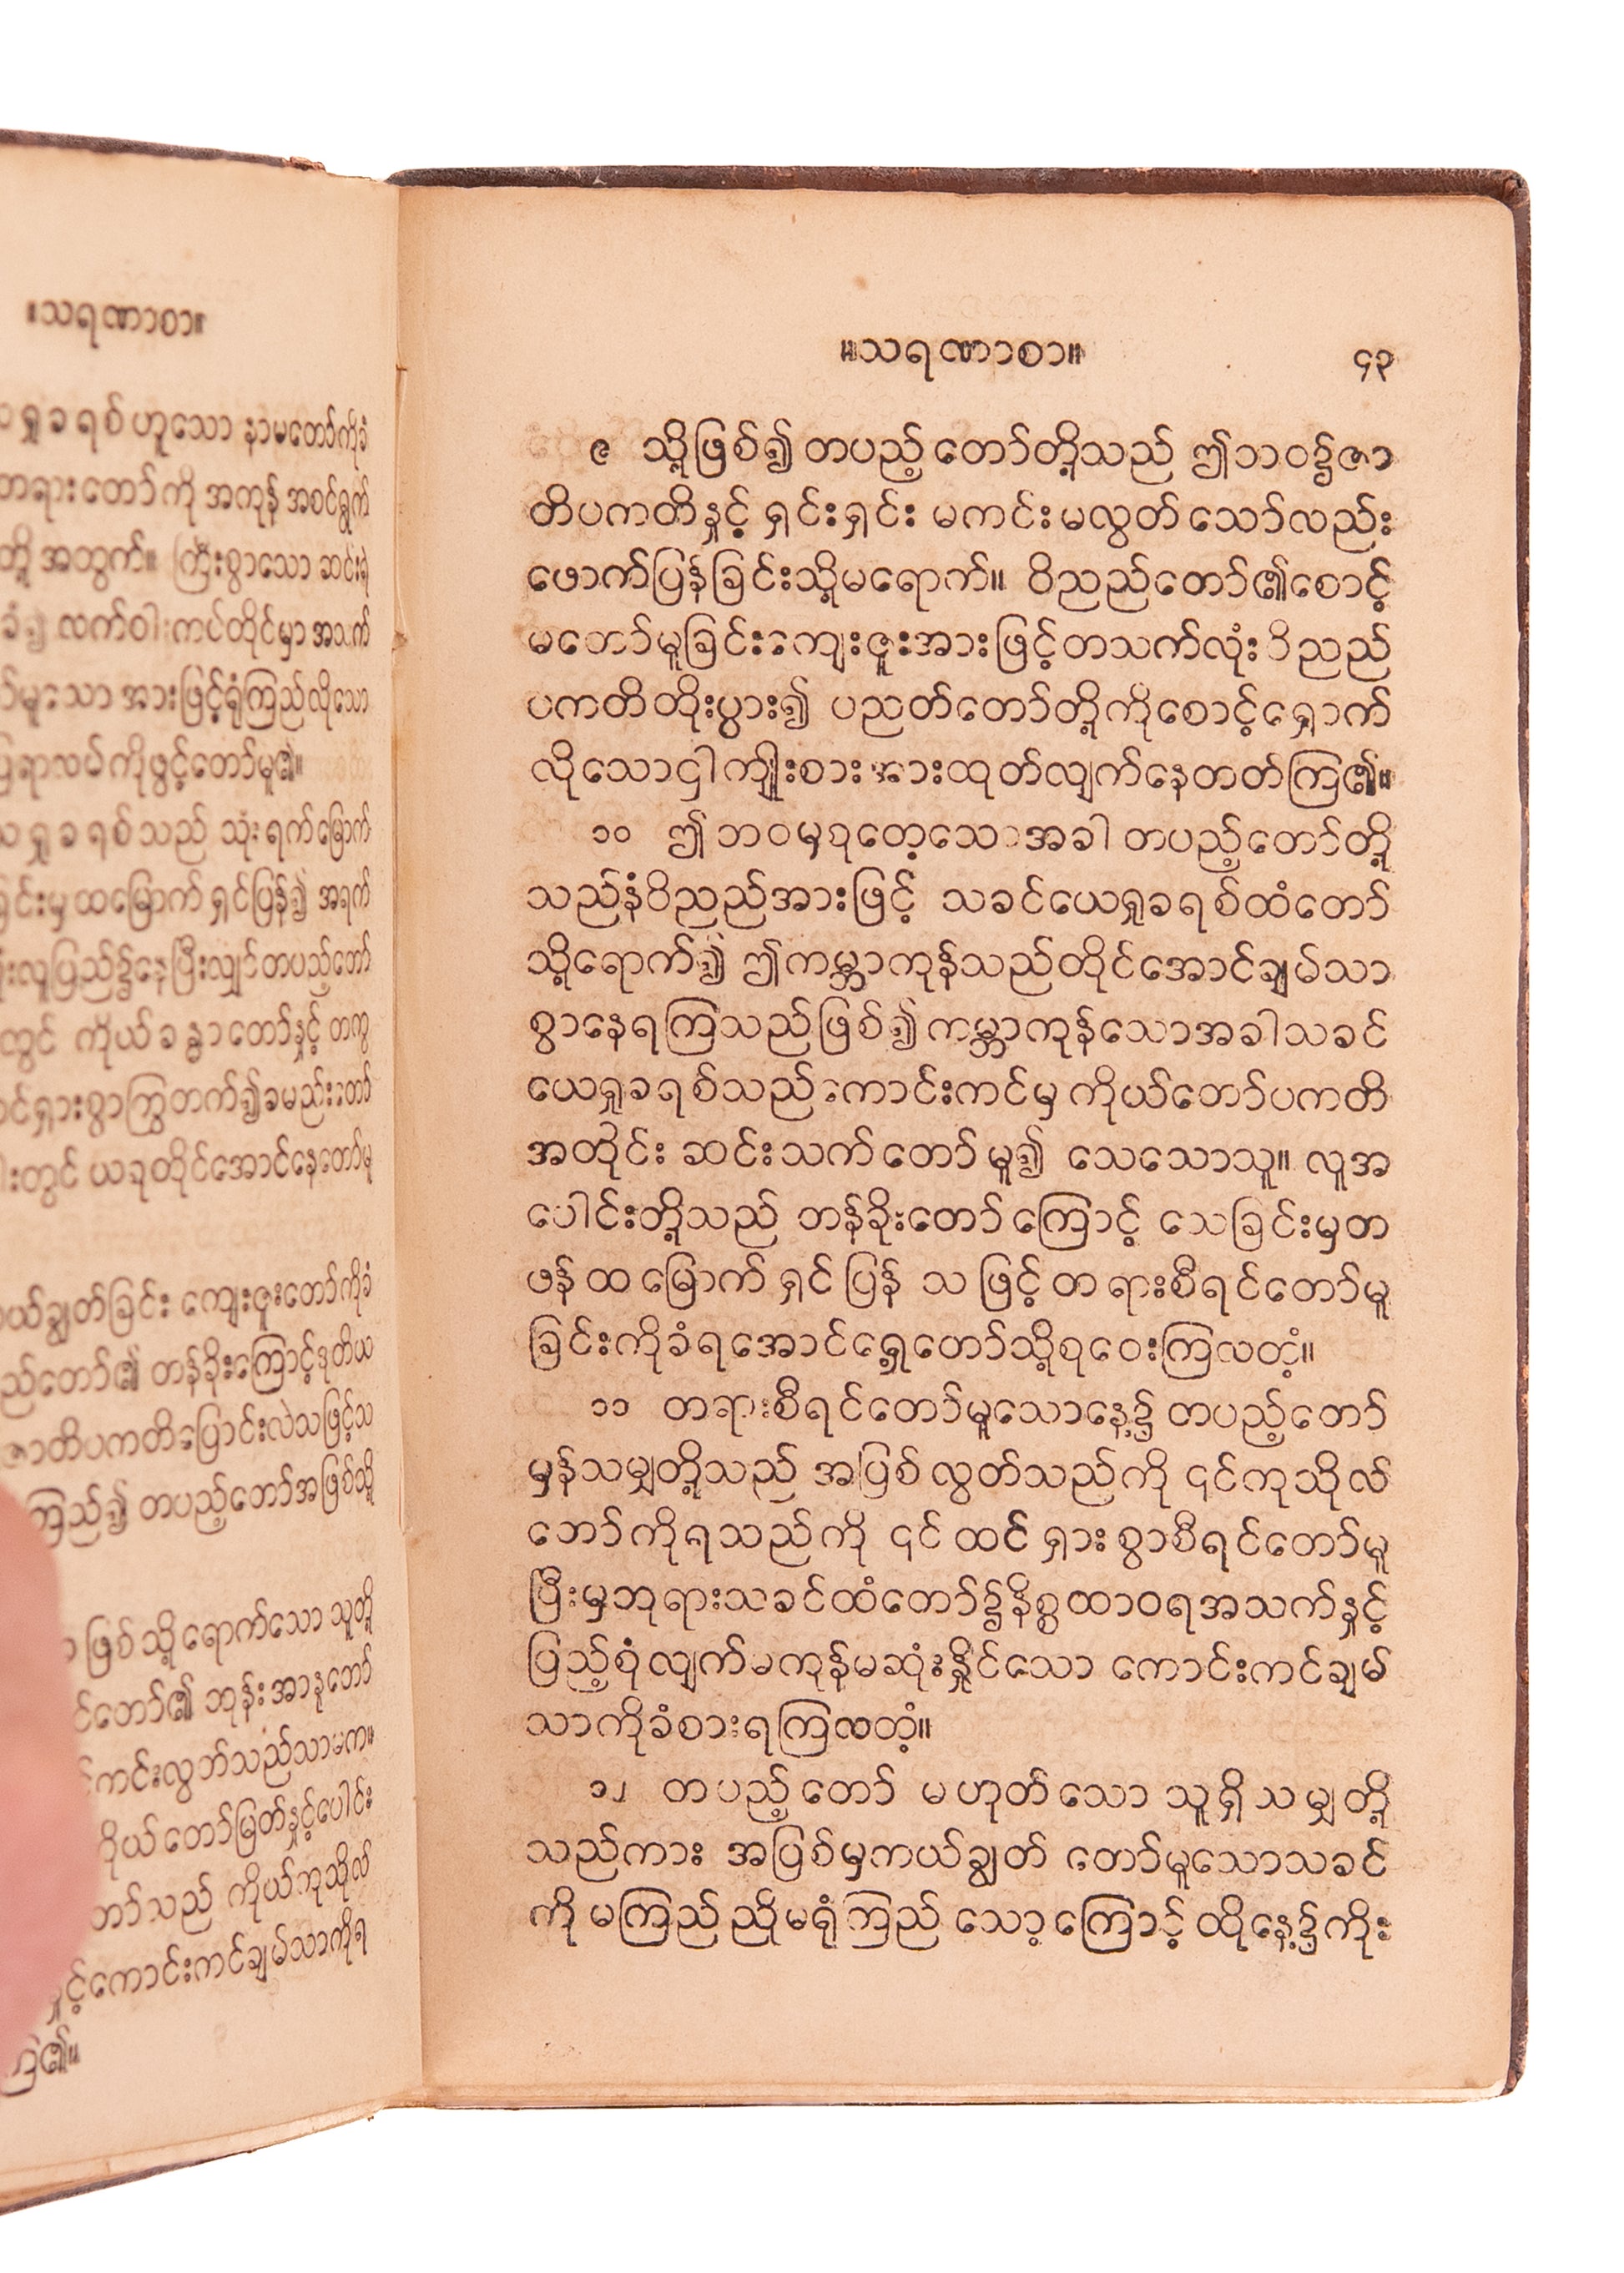 ။သရဏာစာ။
ရှုခရစ်ဟူသော နာမတော်ကိုခံ
တရားတော်ကို အကုန်အစင်ရွက်
တို့အတွက်။ ကြီးစွာသော ဆင်းရဲ
လက်ဝါးကပ်တိုင်မှာ အသက်
အားဖြင့်ရုံကြည်လိုသော
ကိုဖွင့်တော်မူ၏။
ရှုခရစ်သည် သုံးရက်မြောက်
ထမြောက်ရှင်ပြန်၍ အရက်
လူပြည်၌နေပြီးလျှင်တပည့်တော်
ကိုယ်ခန္ဓာတော်နှင့် တကွ
စွာကြွတက်၍ခမည်းတော်
တွင် ယခုတိုင်အောင်နေတော်မူ
ကယ်ချွတ်ခြင်း ကျေးဇူးတော်ကိုခံ
တန်ခိုးကြောင့်ဒုတိယ
ဇာတိပကတိပြောင်းလဲသဖြင့်သ
ကြည်၍ တပည့်တော်အဖြစ်သို့
ဖြစ်သို့ရောက်သော သူတို့
ဘုန်းအာနုတော်
ကင်းလွတ်သည်သာမက။
ကိုယ်တော်မြတ်နှင့်ပေါင်း
တော်သည် ကိုယ်ကုသိုလ်
ကောင်းကင်ချမ်သာကိုရ
ကြ၏။
။သရဏာစာ။ ၄၃
၉ သို့ဖြစ်၍တပည့်တော်တို့သည် ဤဘဝ၌ဇာ
တိပကတိနှင့် ရှင်းရှင်း မကင်းမလွတ်သော်လည်း
ဖောက်ပြန်ခြင်းသို့မရောက်။ ဝိညည်တော်၏စောင့်
မတော်မူခြင်းကျေးဇူးအားဖြင့်တသက်လုံးဝိညည်
ပကတိတိုးပွား၍ ပညတ်တော်တို့ကိုစောင့်ရှောက်
လိုသောငှါကျိုးစားအားထုတ်လျက်နေတတ်ကြ၏။
၁၀ ဤဘဝမှစုတေ့သောအခါ တပည့်တော်တို့
သည်နံဝိညည်အားဖြင့် သခင်ယေရှုခရစ်ထံတော်
သို့ရောက်၍ ဤကမ္ဘာကုန်သည်တိုင်အောင်ချမ်သာ
စွာနေရကြသည်ဖြစ်၍ကမ္ဘာကုန်သောအခါသခင်
ယေရှုခရစ်သည်ကောင်းကင်မှကိုယ်တော်ပကတိ
အတိုင်း ဆင်းသက်တော်မူ၍ သေသောသူ။ လူအ
ပေါင်းတို့သည် တန်ခိုးတော်ကြောင့် သေခြင်းမှတ
ဖန်ထမြောက်ရှင်ပြန် သဖြင့်တရားစီရင်တော်မူ
ခြင်းကိုခံရအောင်ရှေ့တော်သို့စုဝေးကြလတံ့။
၁၁ တရားစီရင်တော်မူသောနေ့၌တပည့်တော်
မှန်သမျှတို့သည် အပြစ်လွတ်သည်ကို၎င်ကုသိုလ်
တော်ကိုရသည်ကို ၎င်ထင်ရှားစွာစီရင်တော်မူ
ပြီးမှဘုရားသခင်ထံတော်၌နိစ္စထာဝရအသက်နှင့်
ပြည့်စုံလျက်မကုန်မဆုံးနှိုင်သော ကောင်းကင်ချမ်
သာကိုခံစားရကြလတံ့။
၁၂ တပည့်တော် မဟုတ်သော သူရှိသမျှတို့
သည်ကား အပြစ်မှကယ်ချွတ် တော်မူသောသခင်
ကိုမကြည်ညိုမရုံကြည် သော့ကြောင့် ထိုနေ့၌ကိုး